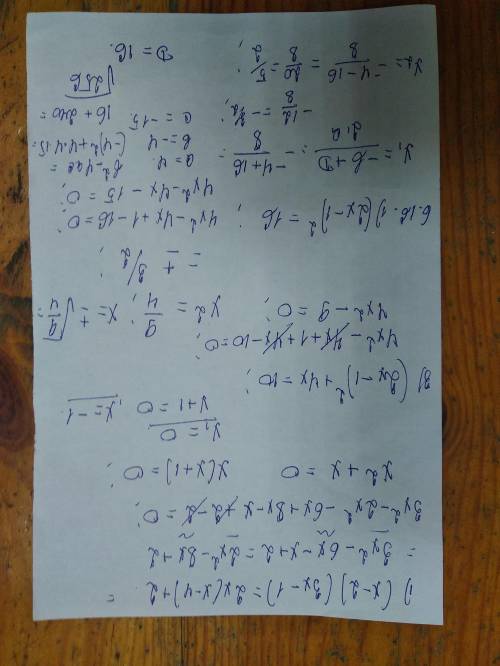 1) (x-2)(3x-1)=2x(x-4)+2 =
= 3x²-6x-x+2=2x²-8x+2
3x²-2x²-6x+8x-x+2-2=0;
x²+x=0 x(x+1)=0;
x₁=0
x+1=0 ; x=-1
2) (2x-1)²+4x=10;
4x²-4x+1+4x-10=0;
4x²-9=0; x²=9/4; x=±√9/4=
= ± 3/2;
6.16.1) (2x-1)²=16;
4x²-4x+1-16=0;
4x²-4x-15=0;
a=4 b²-4ac=
b=-4 (-4)²+4·4·15=
c=-15 16+240=
√256
D=16.
x₁= -b+D/2·a = -4+16/8 =
-12/8 = -3/2;
x₂= -4-16/8 = 20/8 = 5/2;